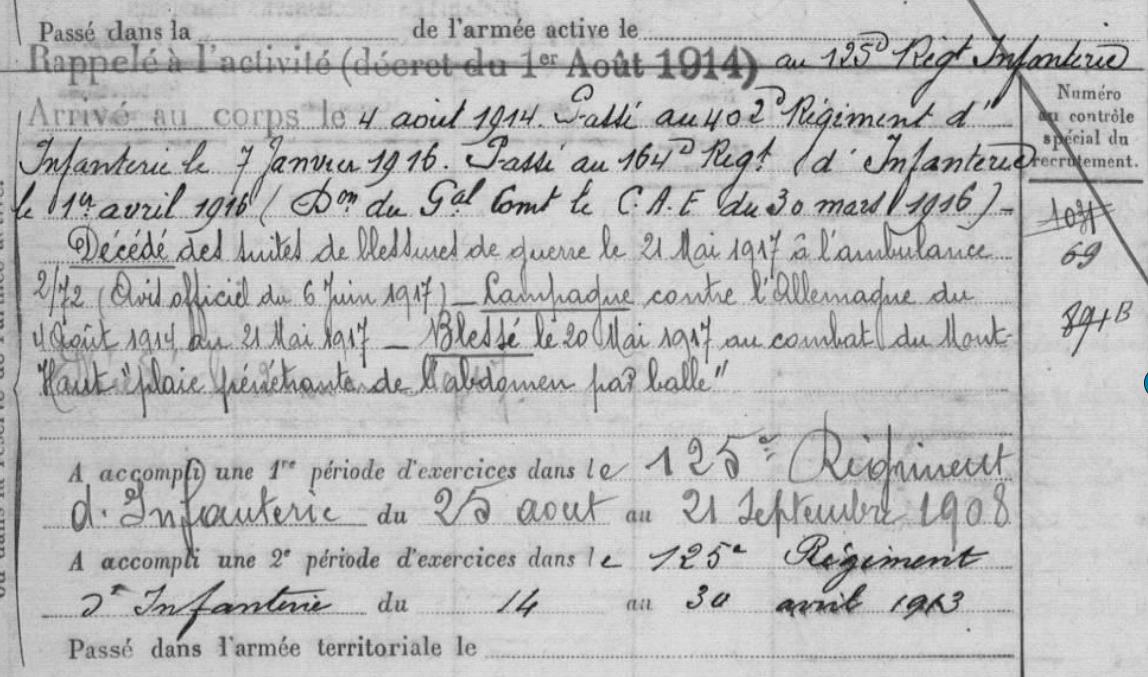 Passé dans la de l'armée active le
Rappelé à l'activité (décret du 1er Août 1914) au 125e Régt Infanterie
Arrivé au corps le 4 aout 1914. Passé au 402e Régiment d'
Infanterie le 7 Janvier 1916. Passé au 164e Régt d'Infanterie
le 1er avril 1916 (Don du Gal Comt le C.A.E du 30 mars 1916) -
Décédé des suites de blessures de guerre le 21 Mai 1917 à l'ambulance
2/72 (Avis officiel du 6 Juin 1917) - Campagne contre l'Allemagne du
4 Août 1914 au 21 Mai 1917 - Blessé le 20 Mai 1917 au combat du Mont-
Haut "plaie pénétrante de l'abdomen par balle"
A accompli une 1re période d'exercices dans le 125e Régiment
d'Infanterie du 25 aout au 21 Septembre 1908
A accompli une 2e période d'exercices dans le 125e Régiment
d'Infanterie du 14 au 30 avril 1913
Passé dans l'armée territoriale le
Numéro
au contrôle
spécial du
recrutement.
69
ou dans la réserve de l'armée active